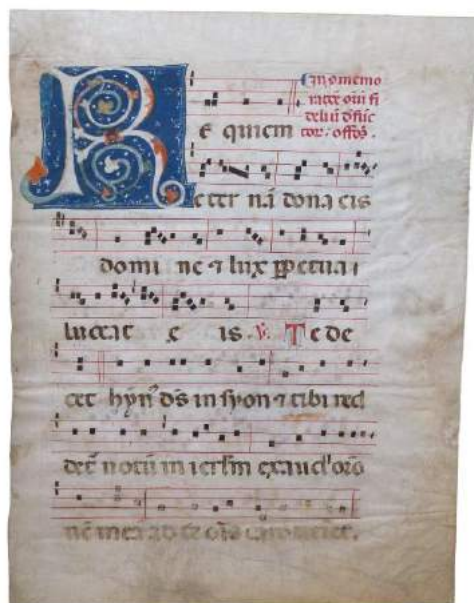 In omemo
ratõe oiũ fi
deliũ dfũc
tor. offds.
Re quiem
eter nã dona eis
domi ne ⁊ lux ppetua
luceat e is. V. Te de
cet hyn⁹ ds in syon ⁊ tibi red
det uotũ in ierlm exaudi orõ
nẽ meã ad te ois caro ueniet.